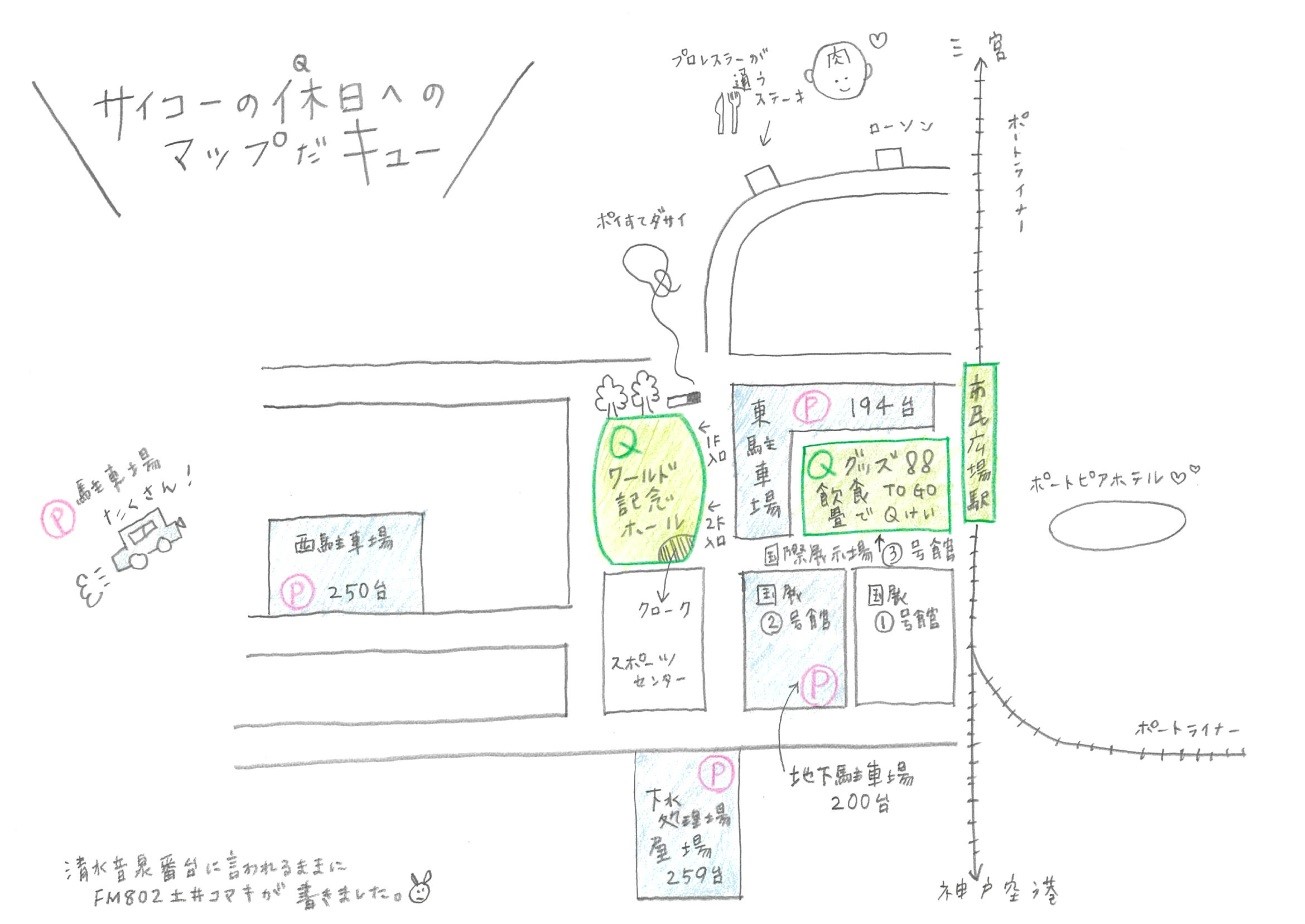 サイコーの休日への
Q
マップだキュー
プロレスラーが
通う
ステーキ
肉
ローソン
三宮
ポートライナー
ポイすてダサイ
駐車場
たくさん!
P
西駐車場
P 250台
Q
ワールド
記念
ホール
←
1F
入口
←
2F
入口
クローク
スポーツ
センター
東駐車場
P 194台
Q グッズ 88
飲食 TO GO
畳で Qけい
国際展示場 ③号館
国展
②号館
P
国展
①号館
地下駐車場
200台
市民広場駅
ポートピアホテル♡♡
ポートライナー
P
下水
処理場
屋場
259台
神戸空港
清水音泉番台に言われるままに
FM802土井コマキが書きました。